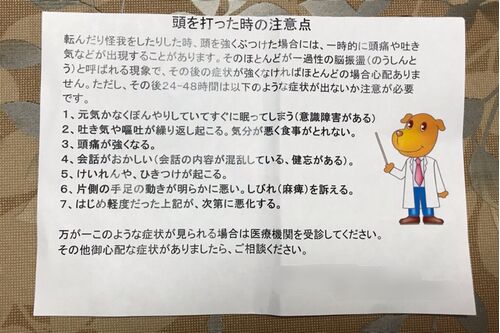 頭を打った時の注意点
転んだり怪我をしたりした時、頭を強くぶつけた場合には、一時的に頭痛や吐き
気などが出現することがあります。そのほとんどが一過性の脳振盪（のうしんと
う）と呼ばれる現象で、その後の症状が強くなければほとんどの場合心配ありま
せん。ただし、その後24-48時間は以下のような症状が出ないか注意が必要
です。
1、元気がなくぼんやりしていてすぐに眠ってしまう（意識障害がある）
2、吐き気や嘔吐が繰り返し起こる。気分が悪く食事がとれない。
3、頭痛が強くなる。
4、会話がおかしい（会話の内容が混乱している、健忘がある）。
5、けいれんや、ひきつけが起こる。
6、片側の手足の動きが明らかに悪い。しびれ（麻痺）を訴える。
7、はじめ軽度だった上記が、次第に悪化する。
万が一このような症状が見られる場合は医療機関を受診してください。
その他御心配な症状がありましたら、ご相談ください。